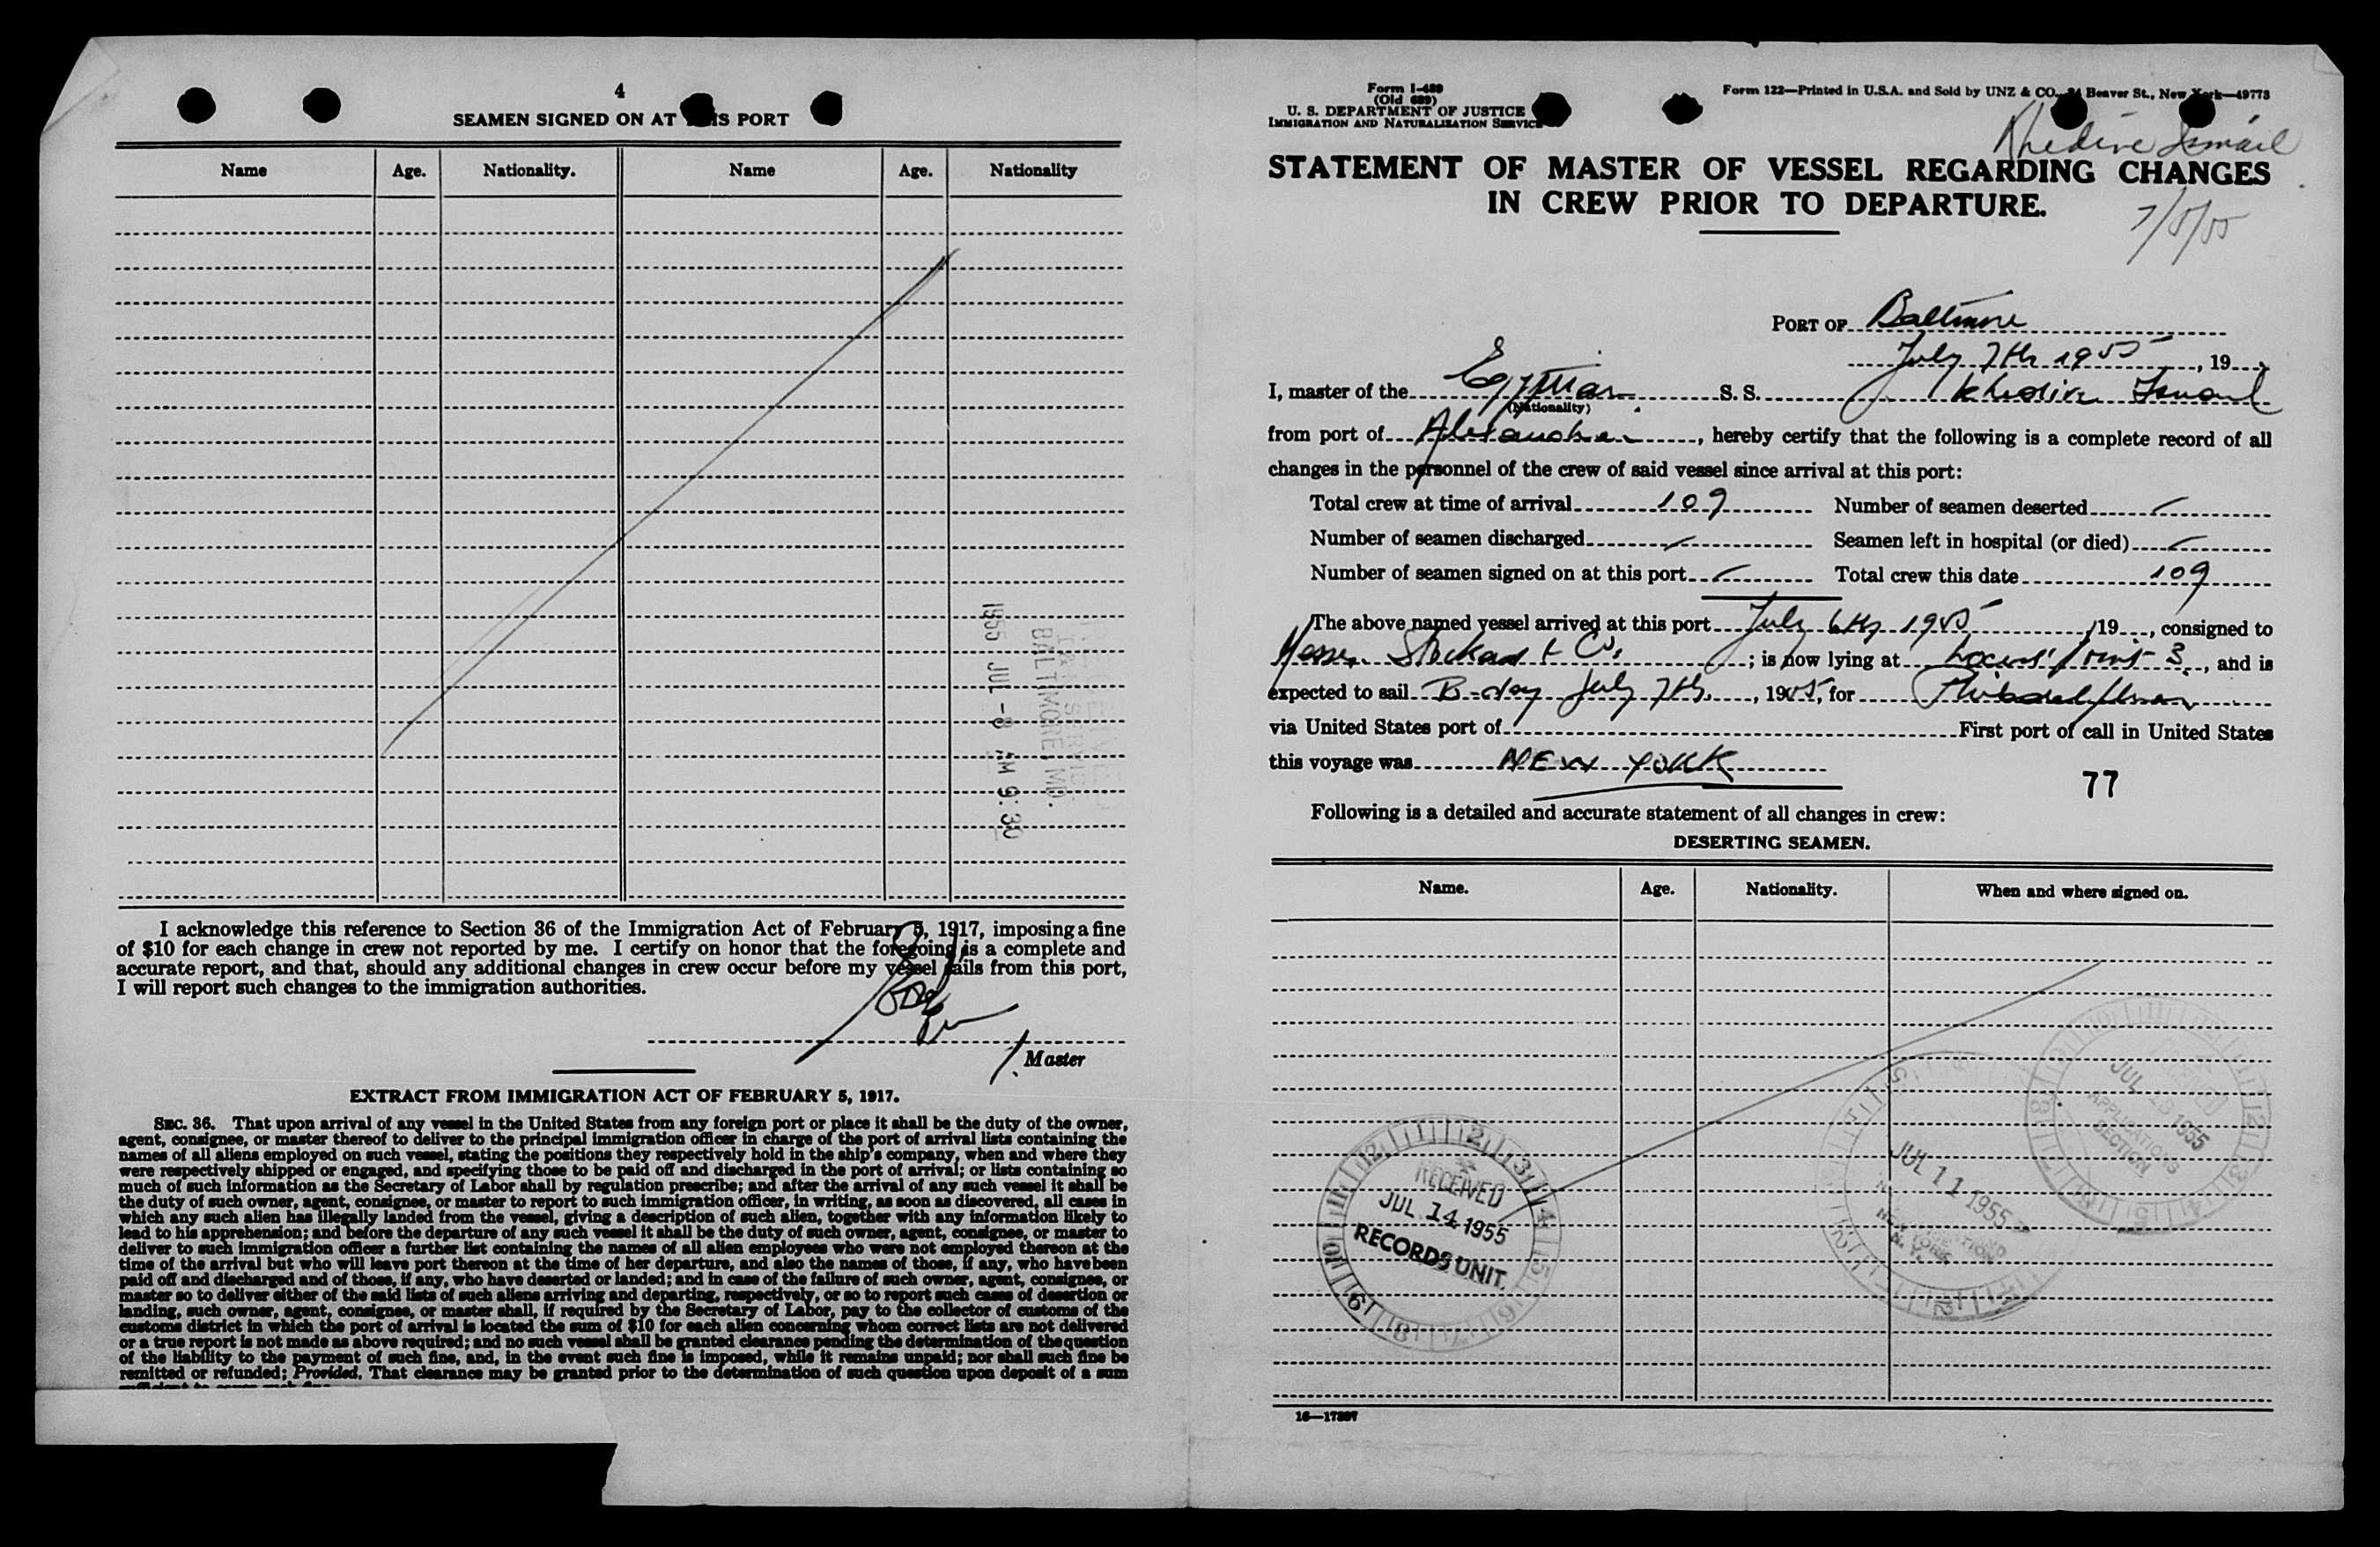 4
SEAMEN SIGNED ON AT THIS PORT
Name Age. Nationality. Name Age. Nationality
RECEIVED
BALTIMORE, MD.
1955 JUL -8 AM 9:30
I acknowledge this reference to Section 36 of the Immigration Act of February 5, 1917, imposing a fine
of $10 for each change in crew not reported by me. I certify on honor that the foregoing is a complete and
accurate report, and that, should any additional changes in crew occur before my vessel sails from this port,
I will report such changes to the immigration authorities.
Master
EXTRACT FROM IMMIGRATION ACT OF FEBRUARY 5, 1917.
SEC. 36. That upon arrival of any vessel in the United States from any foreign port or place it shall be the duty of the owner,
agent, consignee, or master thereof to deliver to the principal immigration officer in charge of the port of arrival lists containing the
names of all aliens employed on such vessel, stating the positions they respectively hold in the ship's company, when and where they
were respectively shipped or engaged, and specifying those to be paid off and discharged in the port of arrival; or lists containing so
much of such information as the Secretary of Labor shall by regulation prescribe; and after the arrival of any such vessel it shall be
the duty of such owner, agent, consignee, or master to report to such immigration officer, in writing, as soon as discovered, all cases in
which any such alien has illegally landed from the vessel, giving a description of such alien, together with any information likely to
lead to his apprehension; and before the departure of any such vessel it shall be the duty of such owner, agent, consignee, or master to
deliver to such immigration officer a further list containing the names of all alien employees who were not employed thereon at the
time of the arrival but who will leave port thereon at the time of her departure, and also the names of those, if any, who have been
paid off and discharged and of those, if any, who have deserted or landed; and in case of the failure of such owner, agent, consignee, or
master so to deliver either of the said lists of such aliens arriving and departing, respectively, or so to report such cases of desertion or
landing, such owner, agent, consignee, or master shall, if required by the Secretary of Labor, pay to the collector of customs of the
customs district in which the port of arrival is located the sum of $10 for each alien concerning whom correct lists are not delivered
or a true report is not made as above required; and no such vessel shall be granted clearance pending the determination of the question
of the liability to the payment of such fine, and, in the event such fine is imposed, while it remains unpaid; nor shall such fine be
remitted or refunded; Provided, That clearance may be granted prior to the determination of such question upon deposit of a sum
Form I-489
(Old 689)
U. S. DEPARTMENT OF JUSTICE
IMMIGRATION AND NATURALIZATION SERVICE
Form 122—Printed in U.S.A. and Sold by UNZ & CO., 24 Beaver St., New York—49773
Khedive Ismail
STATEMENT OF MASTER OF VESSEL REGARDING CHANGES
IN CREW PRIOR TO DEPARTURE.
7/5/55
PORT OF Baltimore
July 7th 1955, 19
I, master of the Egyptian S. S. Khedive Ismail
(Nationality)
from port of Alexandria, hereby certify that the following is a complete record of all
changes in the personnel of the crew of said vessel since arrival at this port:
Total crew at time of arrival 109 Number of seamen deserted
Number of seamen discharged Seamen left in hospital (or died)
Number of seamen signed on at this port Total crew this date 109
The above named vessel arrived at this port July 6th 1955 19, consigned to
Messrs. Stockard & Co. ; is now lying at Locust Point 3, and is
expected to sail July 7th, 1955, for Philadelphia
via United States port of First port of call in United States
this voyage was NEW YORK
77
Following is a detailed and accurate statement of all changes in crew:
DESERTING SEAMEN.
Name. Age. Nationality. When and where signed on.
RECEIVED
JUL 14 1955
RECORDS UNIT.
JUL 11 1955
N. Y.
JUL 1955
APPLICATIONS
SECTION
16—17397